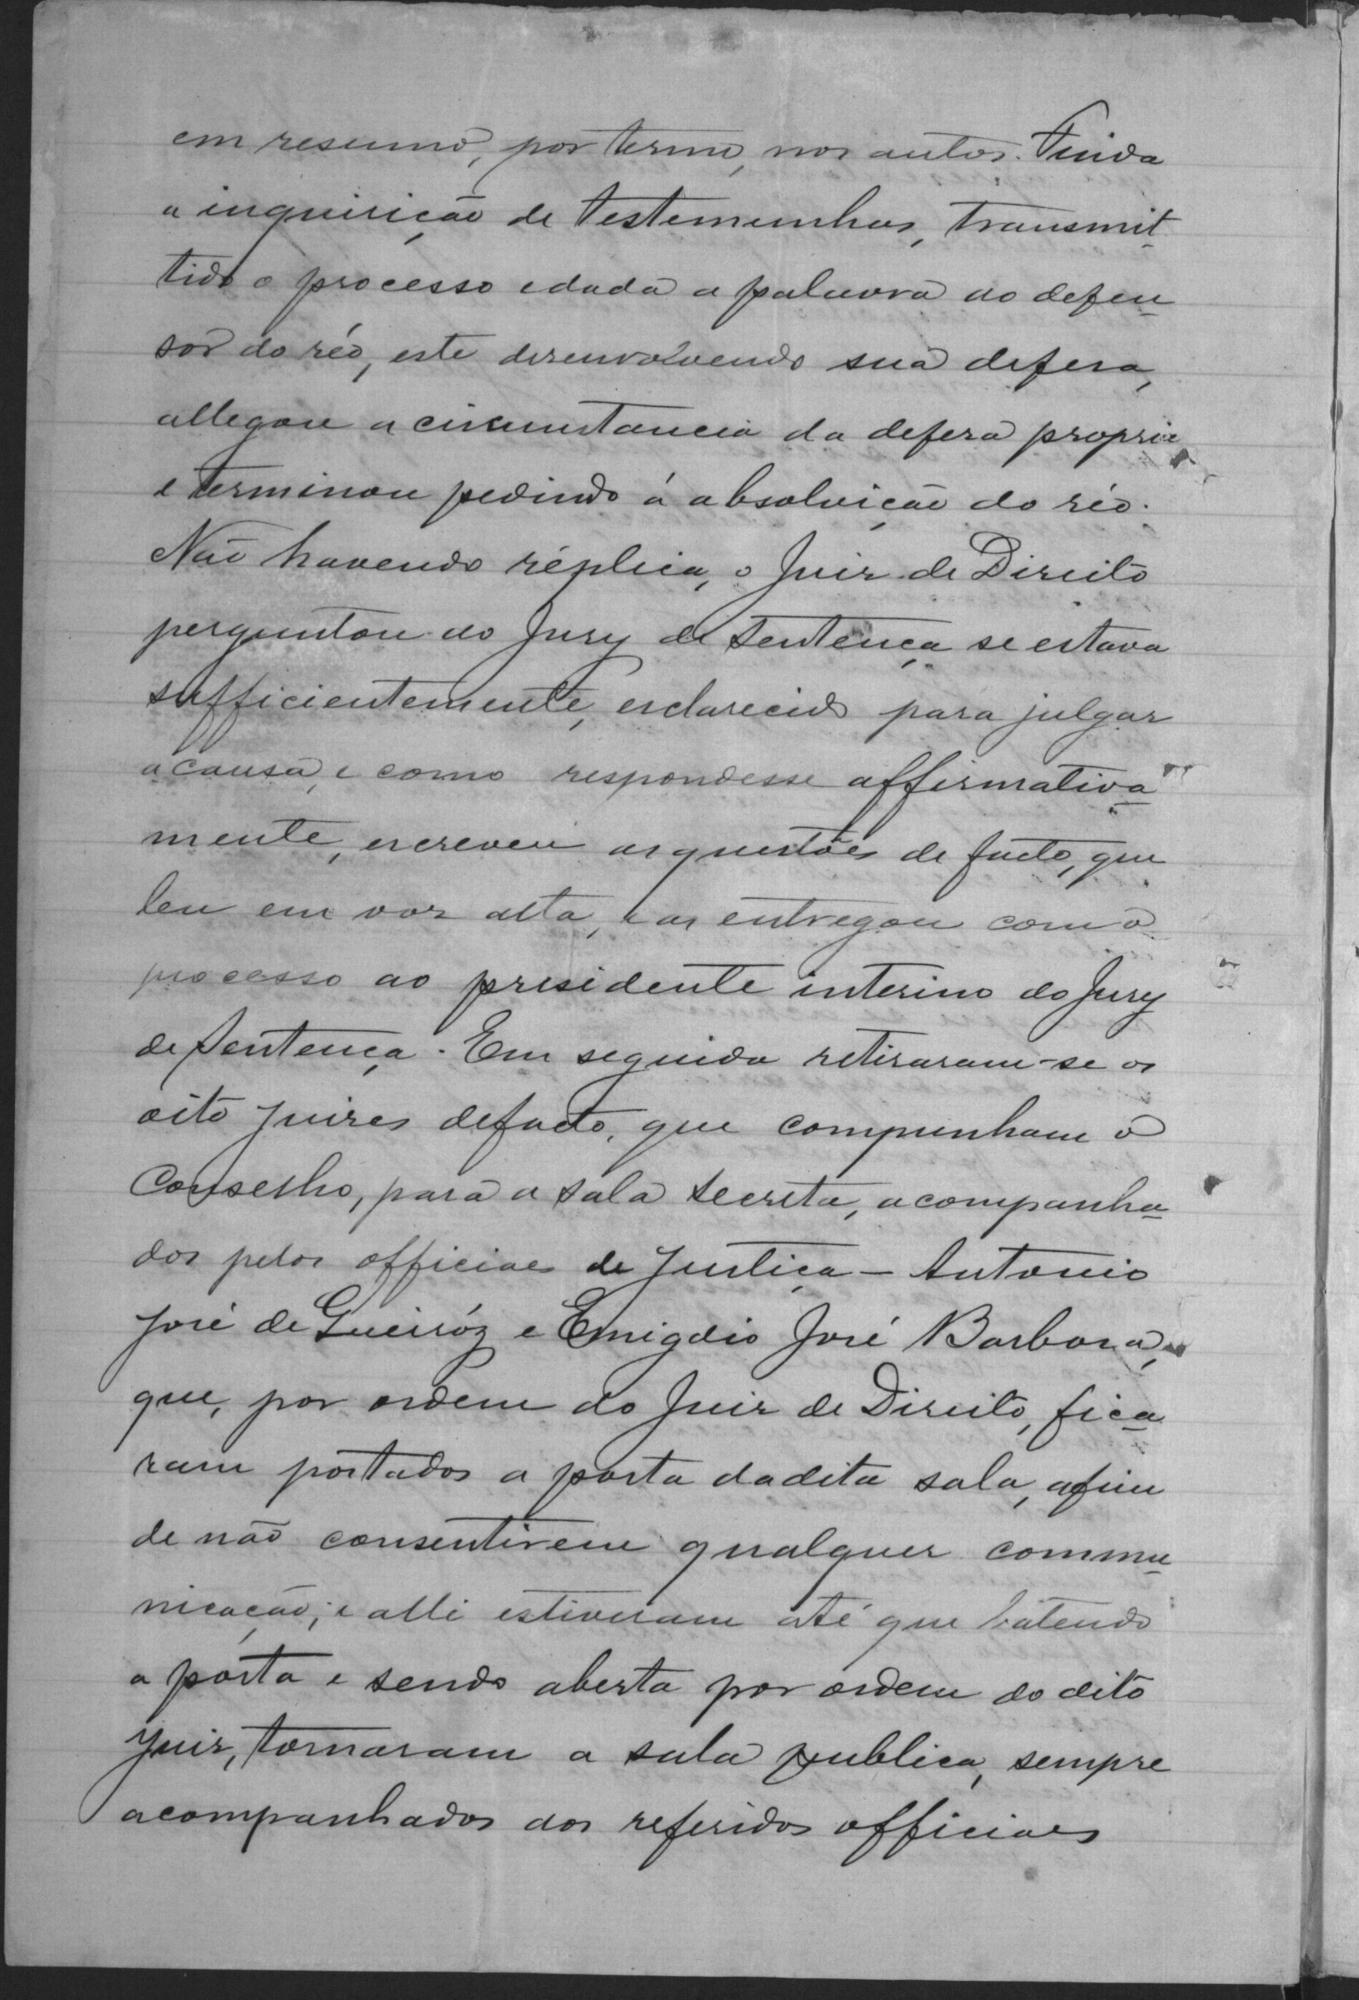 em resumo, por termo, nos autos. Finda
a inquirição de testemunhas, transmit-
tido o processo e dada a palavra ao defen-
sor do réo, este desenvolvendo sua defesa,
allegou a circumstancia da defesa propria
e terminou pedindo á absolvição do réo.
Não havendo réplica, o Juiz de Direito
perguntou ao Jury de Sentença se estava
sufficientemente, esclarecido para julgar
a causa, e como respondesse affirmativa
mente, escreveu as questões de facto, que
leu em voz alta, e as entregou com o
processo ao presidente interino do Jury
de Sentença. Em seguida retiraram-se os
oito Juizes de facto, que compunham o
Conselho, para a sala secreta, acompanha-
dos pelos officiaes de Justiça - Antonio
José de Gueiróz e Emigdio José Barbosa,
que, por ordem do Juiz de Direito, fica-
ram portados a porta da dita sala, afim
de não consentirem qualquer commu-
nicação; e alli estiveram até que batendo
a pórta e sendo aberta por ordem do dito
Juiz, tornaram a sala publica, sempre
acompanhados dos referidos officiaes